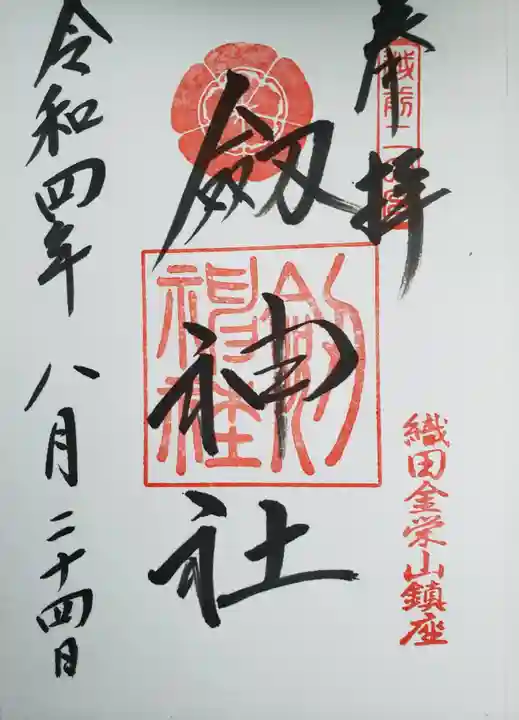 奉拝
越前二の宮
織田金栄山鎮座
劔神社
劔神社
令和四年八月二十四日